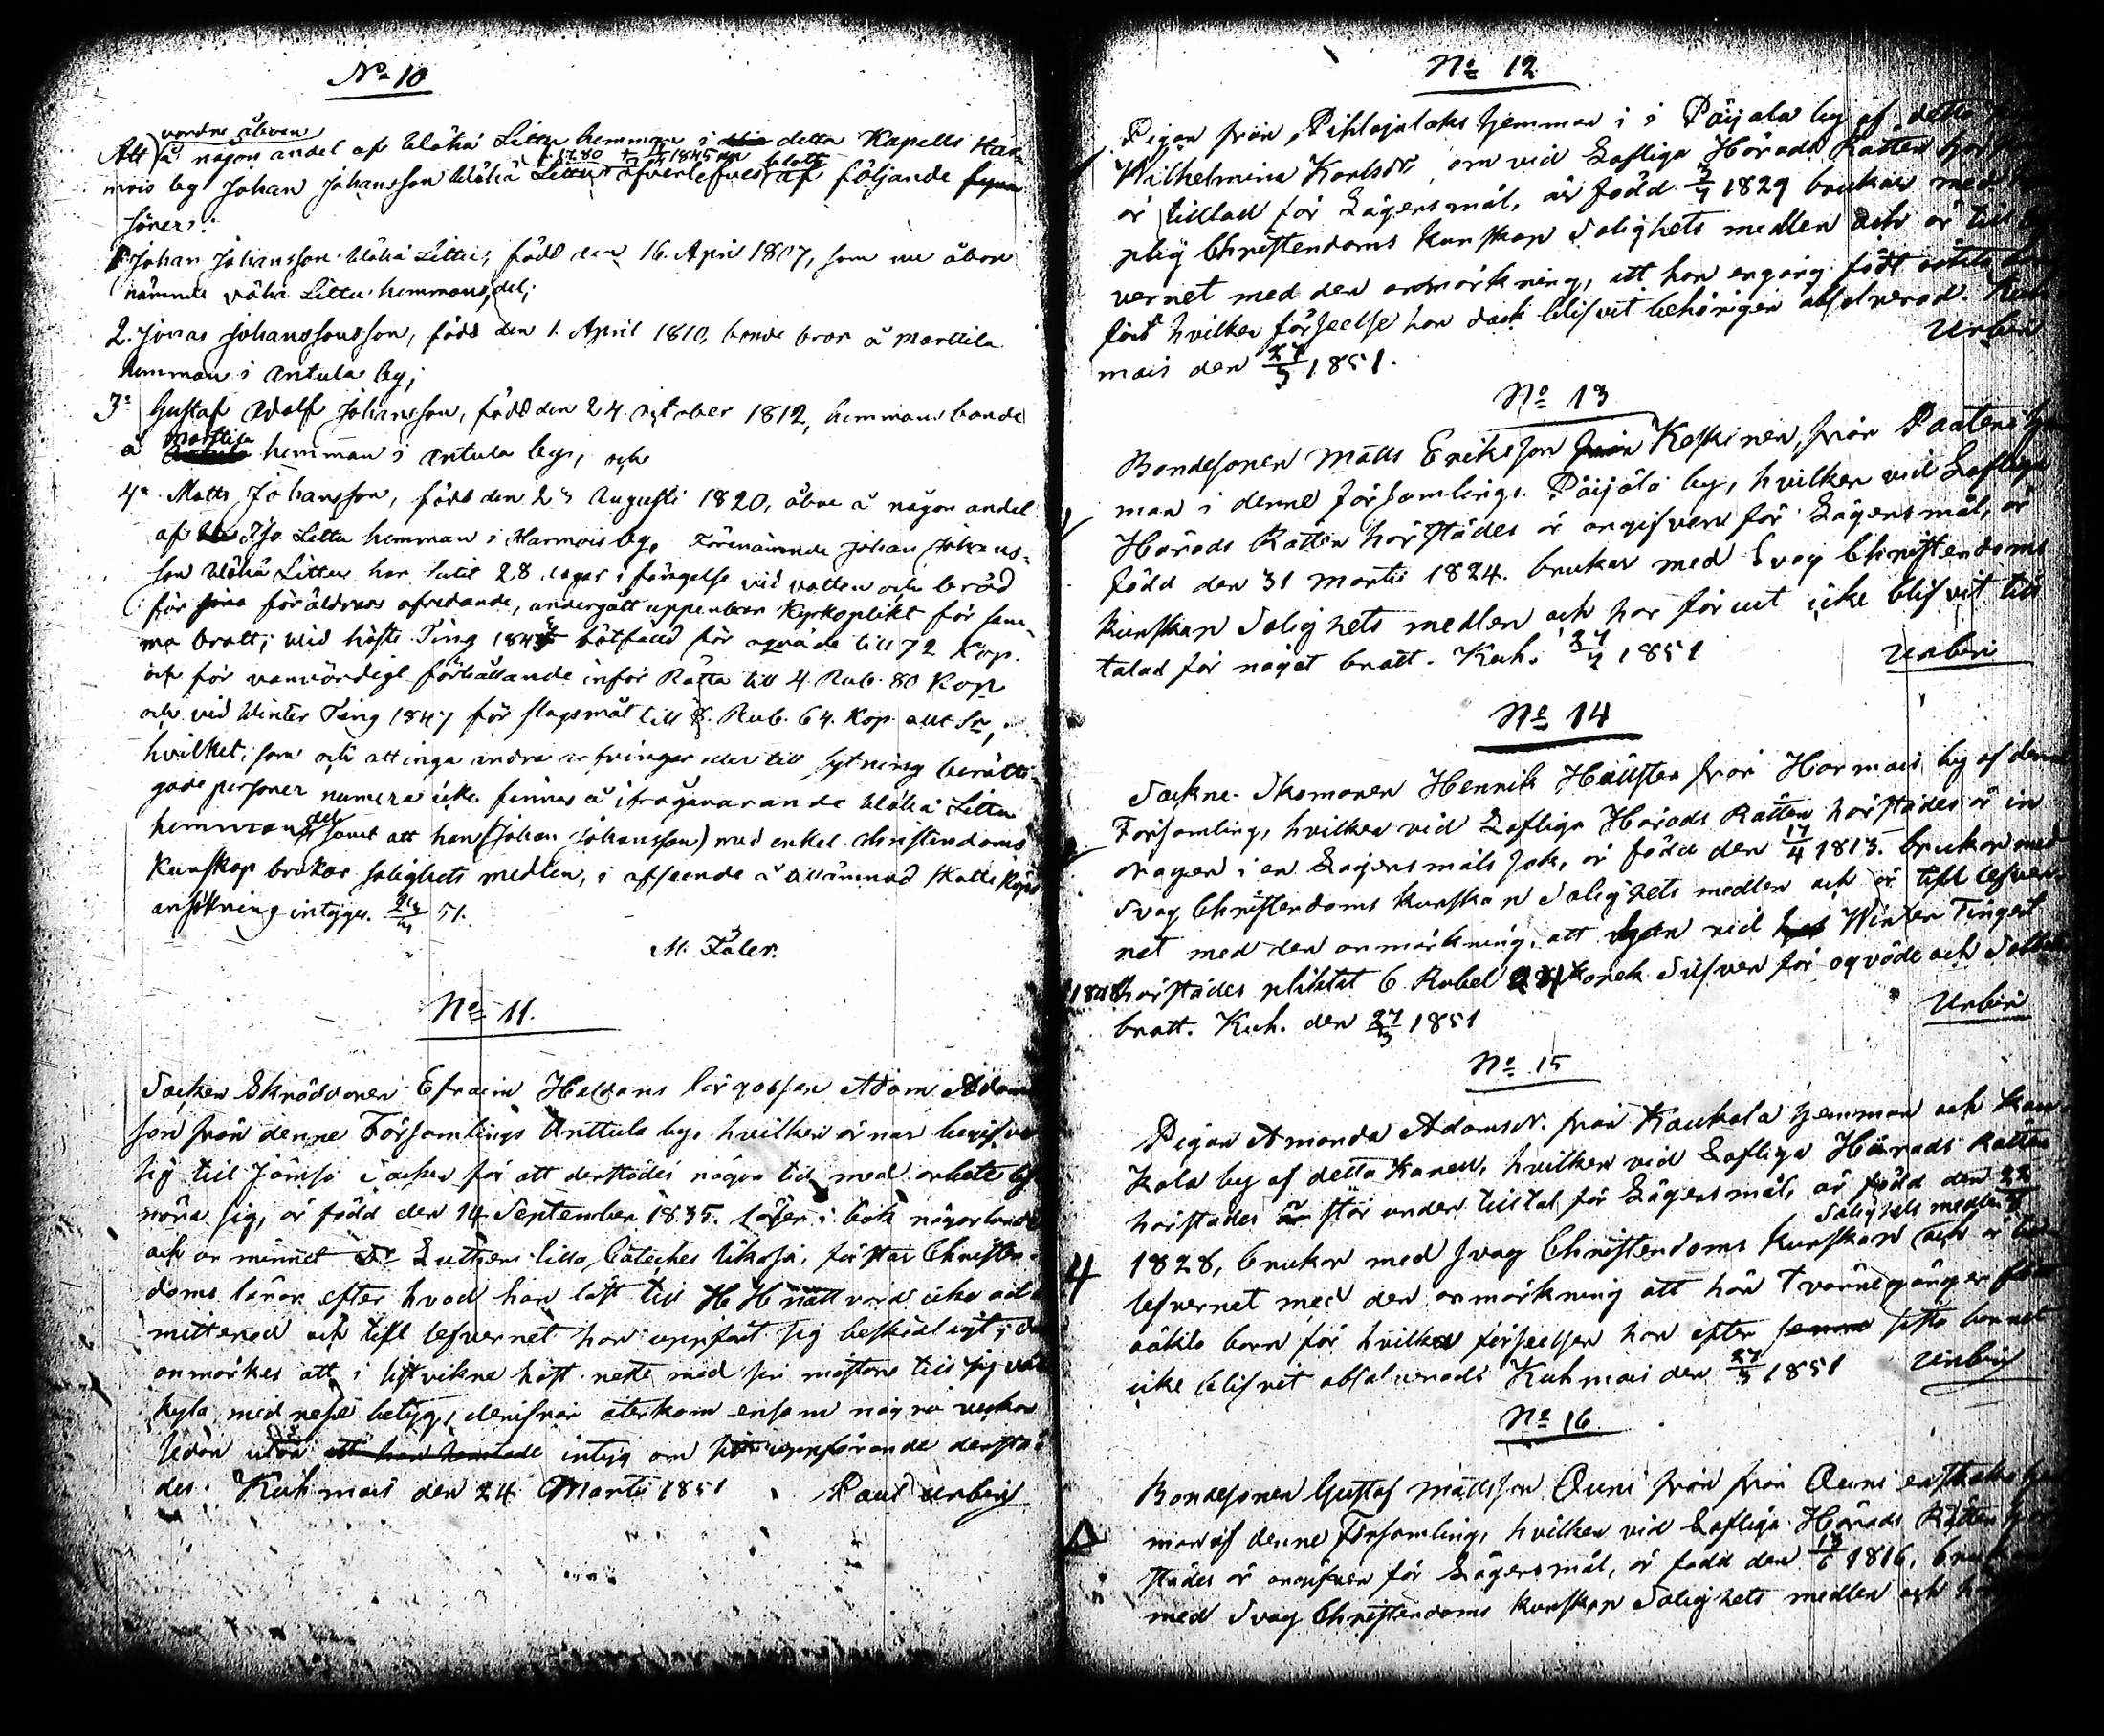 No 10
vordne åboen
Att å någon andel af Wähä Littu hemman i detta Kapells Har-
mois by Johan Johansson Wähä Littu efterlefves af blott följande fyra
söner:
1. Johan Johansson Wähä Littu, född den 16. April 1807, som nu åbor
nämnde Wähä Littu hemmans del;
2. Jonas Johansson, född den 1. April 1810, bonde å Marttila
hemman i Antula by;
3. Gustaf Adolf Johansson, född den 24 October 1812, hemmans bonde
å Marttila hemman i Antula by, och
4. Matts Johansson, född den 25 Augusti 1820, åboe å någon andel
af Iso Littu hemman i Harmois by. Förenämnde Johan Johans-
son Wähä Littu har sutit 28 dagar i fängelse vid vatten och bröd
för föräldrars ofredande, undergått uppenbar Kyrkoplikt för sam-
ma brott; vid höste Ting 1845 bötfälld för oqväde till 72 Kop.
och för vanvördigt förhållande inför Rätta till 4 Rub. 80 Kop
och vid Winter Ting 1847 för slagsmål till 8. Rub. 64. Kop allt Sr,
hvilket, som och att inga andra arfvingar eller till sytning berätti-
gade personer numera icke finnas å ifrågavarande Wähä Littu
hemmans del samt att han (Johan Johansson) med enkel christendoms
Kunskap brukar salighets medlen, i afseende å tillämnad Skatte Köps
ansökning intygas. 51.
M. Taler.
No 11.
Socken Skräddaren Efraim Heldans lärgosse Adam Adams
son från denne Församlings Anttula by, hvilken ärnar begifva
sig till Jämsä Socken för att derstädes någon tid med arbete
nära sig, är född den 14 September 1835. läser i bok någorlunda
och ur minnet Dr Lutheri lilla Cateches likaså, förstår Christen-
doms läran efter hvad han läst till HH nattvard icke ad-
mitterad och till lefvernet har uppfört sig beskedligt; d
anmärkes att i sistvikne höst reste med sin mästare till
kyla med pass betyg, derifrån återkom ensam några veckor
sedan utan intyg om sitt uppförande derstä-
des. Kuhmois den 24 Martii 1851 Paul Urbin
No 12
Pigan från Pihlajalaks hemman i Päijälä by af detta
Wilhelmina Karlsdr, om vid Lofliga Härads Rätten härst
är tilltalad för Lägersmål, är född 1829 brukar med
plig Christendoms Kunskap Salighets medlen och är till lef
vernet med den anmärkning, att hon engång födt oäkta barn
för hvilken förseelse hon dock blifvit behörigen absolverad. Kuh-
mois den 27/3 1851. Urbin
No 13
Bondesonen Matts Eriksson Keskinen, från Paateri hem
man i denne församlings Päijälä by, hvilken vid Lofliga
Härads Rätten härstädes är angifven för Lägersmål, är
född den 31 Martii 1824. brukar med Svag Christendoms
Kunskap Salighets medlen och har förut icke blifvit till
talad för något brott. Kuh. 1851 Urbin
No 14
Sockne-Skomakaren Henrik Hällsten från Harmois by af denne
Församling, hvilken vid Lofliga Härads Rätten härstädes är in
dragen i en Lägersmåls sak, är född den 17/4 1813. brukar med
Svag Christendoms kunskap Salighets medlen och är till lefver-
net med den anmärkning, att vid Winter Tinget
1848 härstädes pliktat 6 Rubel Kopek Silfver för oqväde och Sabbats
brott. Kuh. den 27/3 1851 Urbin
No 15
Pigan Amanda Adamsdr. från Kaukola hemman och Kau-
kola by af detta Kapell, hvilken vid Lofliga Härads Rätten
härstädes står under tilltal för Lägersmål, är född den
1828, brukar med svag Christendoms kunskap Salighets medlen och är till
lefvernet med den anmärkning att hon Tvänne gånger födt
oäkta barn för hvilken förseelser hon efter sista barnet
icke blifvit absolverad. Kuhmois den 27/3 1851 Urbin
No 16
Bondesonen Gustaf Mattsson Ouni från Ouni enstaka hem
man af denne Församling, hvilken vid Lofliga Härads Rätten här
städes är angifven för Lägersmål, är född den 1816, bruk
med Svag Christendoms kunskap Salighets medlen och ha